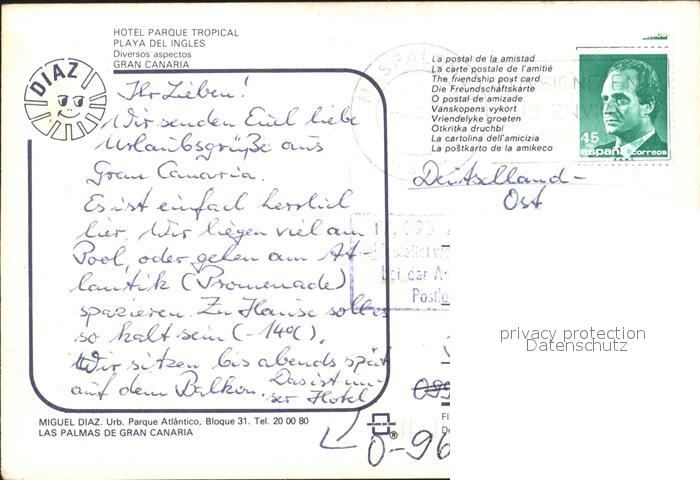 HOTEL PARQUE TROPICAL
PLAYA DEL INGLES
Diversos aspectos
GRAN CANARIA
DIAZ
Ihr Lieben!
Wir senden Euch liebe
Urlaubsgrüße aus
Gran Canaria.
Es ist einfach herrlich
hier. Wir liegen viel am
Pool, oder gehen am At-
lantik (Promenade)
spazieren. Zu Hause soll es
so kalt sein (-14°C).
Wir sitzen bis abends spät
auf dem Balkon. Das ist un-
ser Hotel
MIGUEL DIAZ. Urb. Parque Atlántico, Bloque 31. Tel. 20 00 80
LAS PALMAS DE GRAN CANARIA
La postal de la amistad
La carte postale de l'amitié
The friendship post card
Die Freundschaftskarte
O postal de amizade
Vanskopens vykort
Vriendelyke groeten
Otkritka druchbi
La cartolina dell'amicizia
La poŝtkarto de la amikeco
45
españa correos
F.N.M.T.
Deutschland-
Ost
bei der
O-96
®
privacy protection
Datenschutz